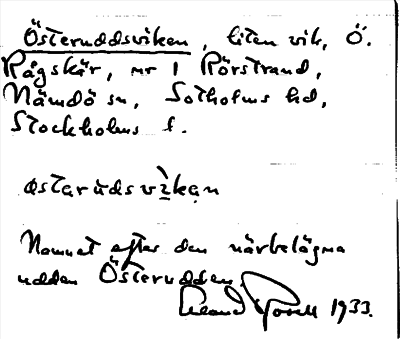 Österuddsviken, liten vik, Ö.
Rågskär, nr 1 Rörstrand,
Nämdö sn, Sotholms hd,
Stockholms l.
østarùdsvìkan
Namnet efter den närbelägna
udden Österudden.
1933.